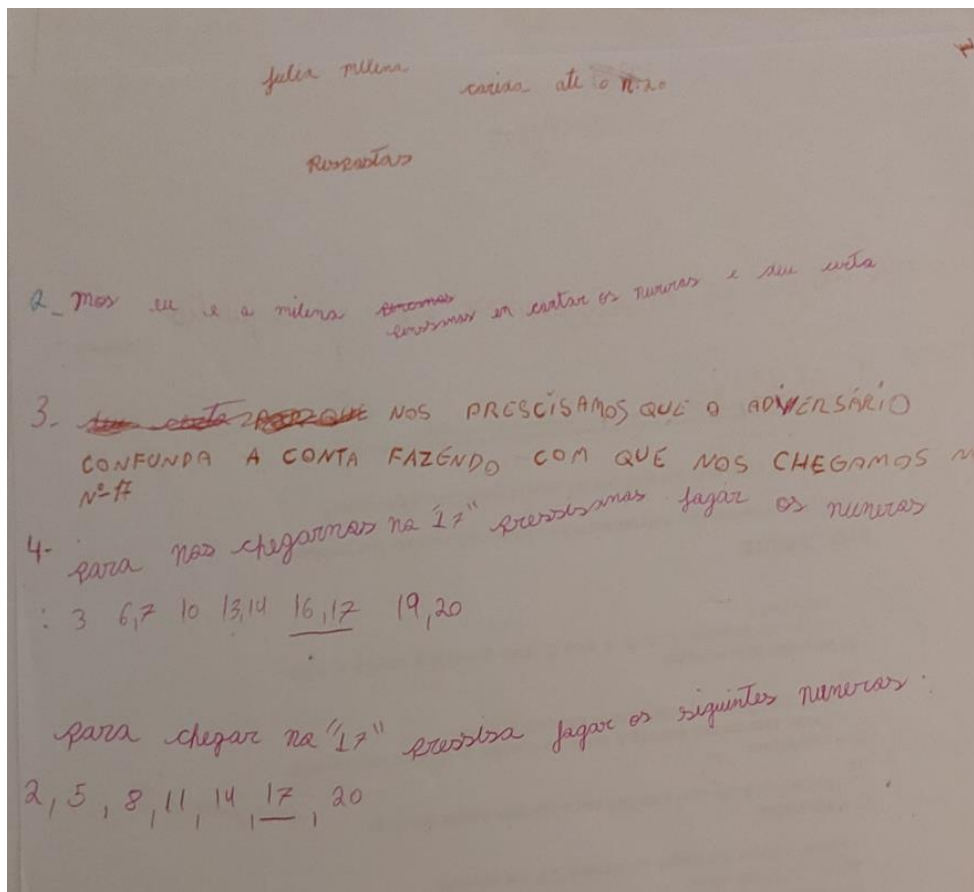 Julia milena corida até o n.20
Respostas
2_ mos eu e a milena
penssamos em contar os numeros e deu certa
3- NOS PRESCISAMOS QUE O ADIVERSÁRIO
CONFUNDA A CONTA FAZENDO COM QUE NOS CHEGAMOS N
Nº 17
4- para nos chegarmos na "17" pressisamos jagar os numeros
: 3 6,7 10 13,14 16,17 19,20
para chegar na "17" pressisa jagar os siguintes numeros:
2, 5, 8, 11, 14, 17, 20